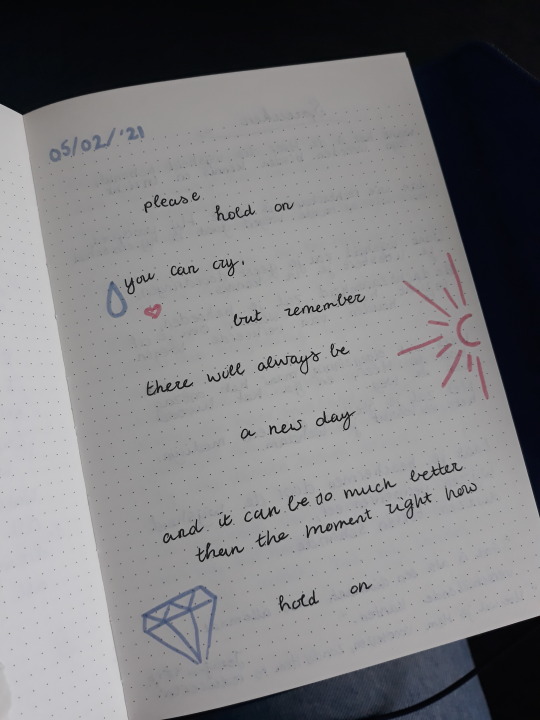 05/02/'21
please
hold on
you can cry.
but remember
there will always be
a new day
and it can be so much better
than the moment right now
hold on